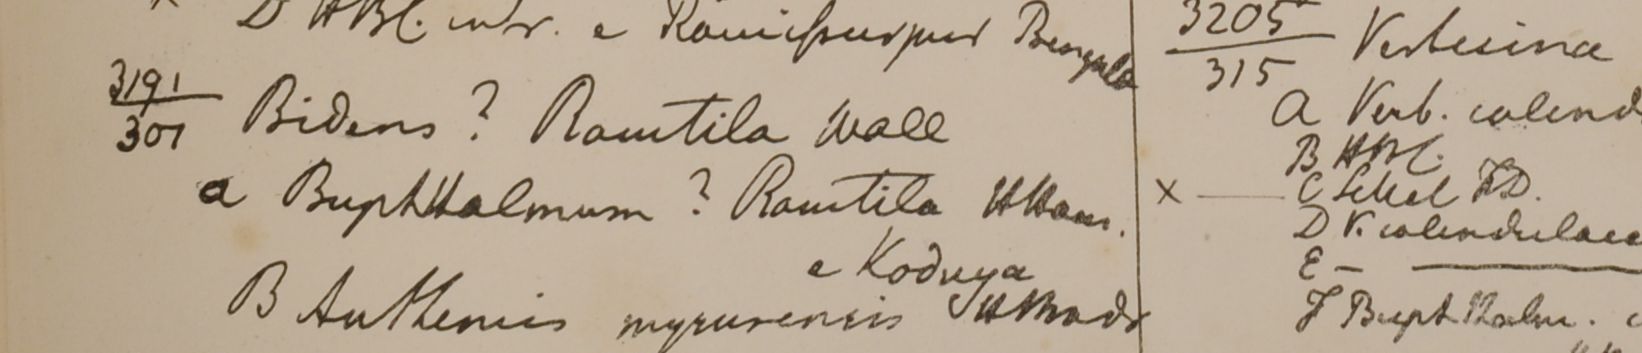 D HBC. intr. e Bengala
3191
301 Bidens ? Ramtila Wall
a Buphthalmum ? Ramtila HHam.
e Koduya
B Anthemis mysurensis HMadr
3205
315 Verbesina
a Verb. calend
B HBC.
× C HD.
D V. calendulace
E —
F Buphthalm. c